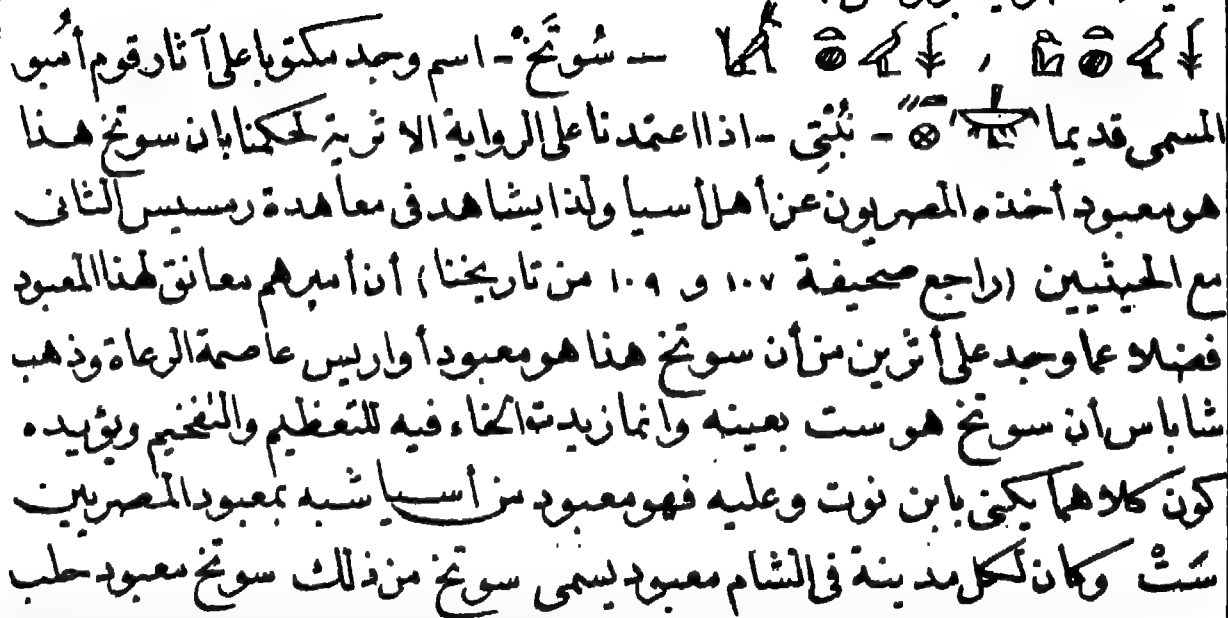 — سُوتَخْ - اسم وجد مكتوبا على آثار قوم أُمبو
المسمى قديما - نُبْتِى - اذا اعتمدنا على الرواية الاثرية لحكمنا بان سوتخ هذا
هو معبود أخذه المصريون عن أهل أسيا ولذا يشاهد فى معاهدة رمسيس الثانى
مع الحيثيين (راجع صحيفة ١٠٧ و ١٠٩ من تاريخنا) أن أميرهم معانق لهذا المعبود
فضلا عما وجد على أثرين من أن سوتخ هذا هو معبود أواريس عاصمة الرعاة وذهب
شاباس أن سوتخ هو ست بعينه وانما زيدت الخاء فيه للتعظيم والتفخيم ويؤيده
كون كلاهما يكنى بابن نوت وعليه فهو معبود من أسيا شبه بمعبود المصريين
سَتْ وكان لكل مدينة فى الشام معبود يسمى سوتخ من ذلك سوتخ معبود حلب